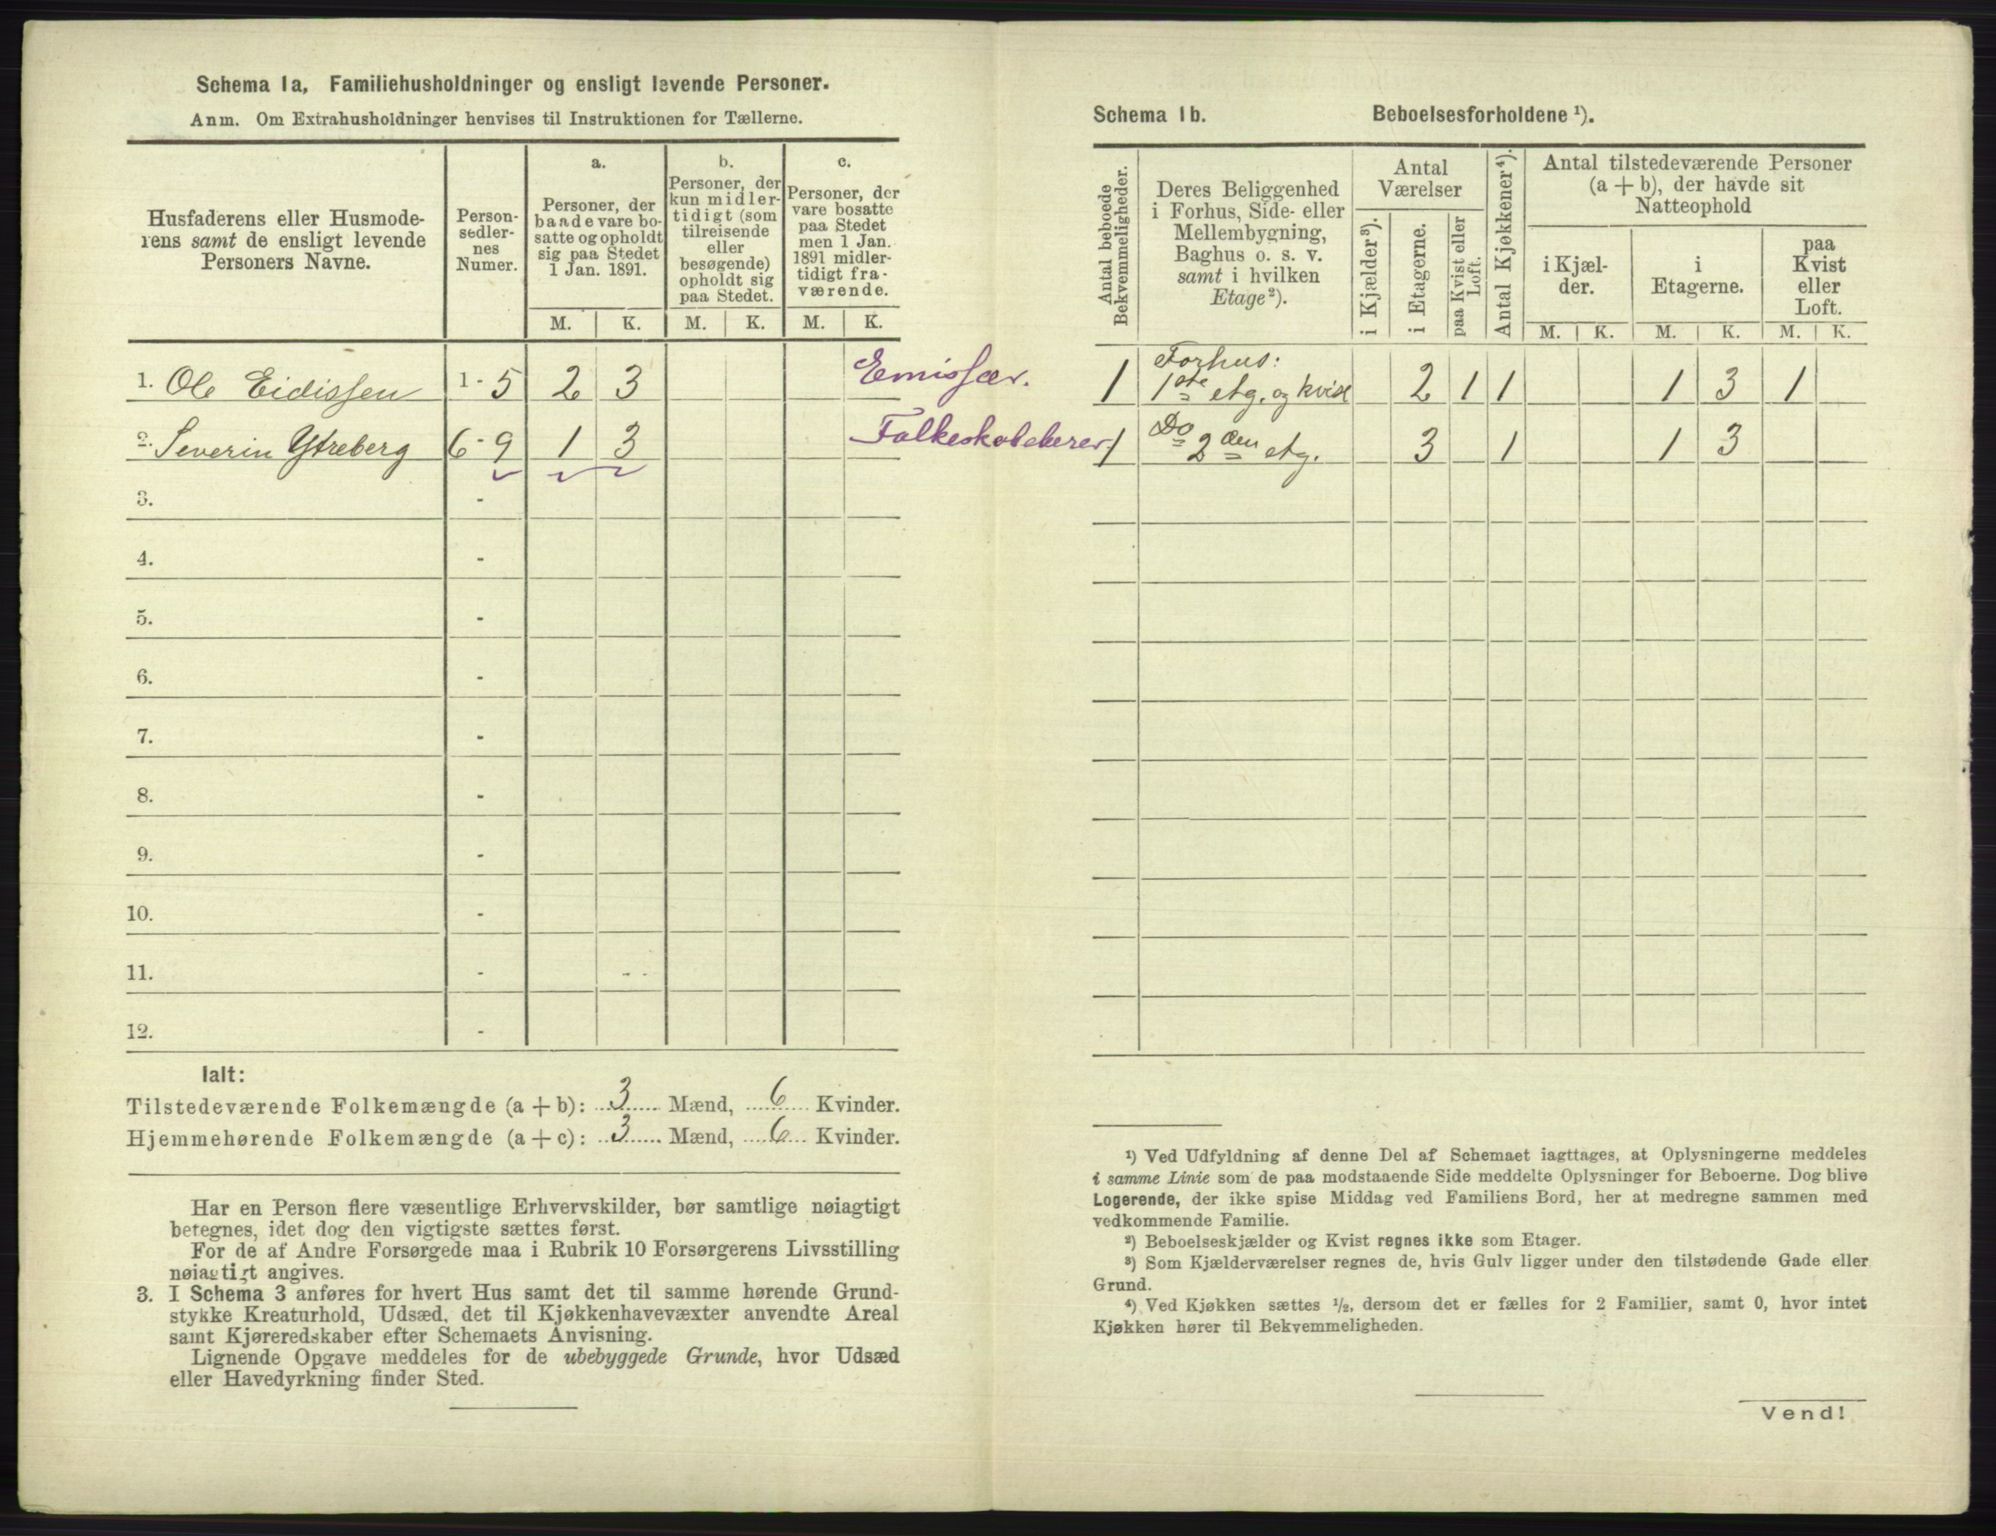 Schema 1a, Familiehusholdninger og ensligt levende Personer.
Anm. Om Extrahusholdninger henvises til Instruktionen for Tællerne.
Husfaderens eller Husmode-
rens samt de ensligt levende
Personers Navne.
Person-
sedler-
nes
Numer.
a.
Personer, der
baade vare bo-
satte og opholdt
sig paa Stedet
1 Jan. 1891.
M. K.
b.
Personer, der
kun midler-
tidigt (som
tilreisende
eller
besøgende)
opholdt sig
paa Stedet.
M. K.
c.
Personer, der
vare bosatte
paa Stedet
men 1 Jan.
1891 midler-
tidigt fra-
værende.
M. K.
1. Ole Eidissen 1 - 5 2 3 Emissær.
2. Severin Ytreberg 6 - 9 1 3 Folkeskolelærer
3. -
4. -
5. -
6. -
7. -
8. -
9. -
10. -
11. - - -
12. -
Ialt:
Tilstedeværende Folkemængde (a + b): 3 Mænd, 6 Kvinder.
Hjemmehørende Folkemængde (a + c): 3 Mænd, 6 Kvinder.
Har en Person flere væsentlige Erhvervskilder, bør samtlige nøiagtigt
betegnes, idet dog den vigtigste sættes først.
For de af Andre Forsørgede maa i Rubrik 10 Forsørgerens Livsstilling
nøiagtigt angives.
3. I Schema 3 anføres for hvert Hus samt det til samme hørende Grund-
stykke Kreaturhold, Udsæd, det til Kjøkkenhavevæxter anvendte Areal
samt Kjøreredskaber efter Schemaets Anvisning.
Lignende Opgave meddeles for de ubebyggede Grunde, hvor Udsæd
eller Havedyrkning finder Sted.
Schema 1b. Beboelsesforholdene ¹).
Antal beboede
Bekvemmeligheder.
Deres Beliggenhed
i Forhus, Side- eller
Mellembygning,
Baghus o. s. v.
samt i hvilken
Etage²).
Antal
Værelser
i Kjælder³).
i Etagerne.
paa Kvist eller
Loft.
Antal Kjøkkener⁴).
Antal tilstedeværende Personer
(a + b), der havde sit
Natteophold
i Kjæl-
der.
i
Etagerne.
paa
Kvist
eller
Loft.
M. K. M. K. M. K.
Forhus:
1 1ste etg. og kvist 2 1 1 1 3 1
1 Do 2den etg. 3 1 1 3
¹) Ved Udfyldning af denne Del af Schemaet iagttages, at Oplysningerne meddeles
i samme Linie som de paa modstaaende Side meddelte Oplysninger for Beboerne. Dog blive
Logerende, der ikke spise Middag ved Familiens Bord, her at medregne sammen med
vedkommende Familie.
²) Beboelseskjælder og Kvist regnes ikke som Etager.
³) Som Kjælderværelser regnes de, hvis Gulv ligger under den tilstødende Gade eller
Grund.
⁴) Ved Kjøkken sættes ½, dersom det er fælles for 2 Familier, samt 0, hvor intet
Kjøkken hører til Bekvemmeligheden.
Vend!